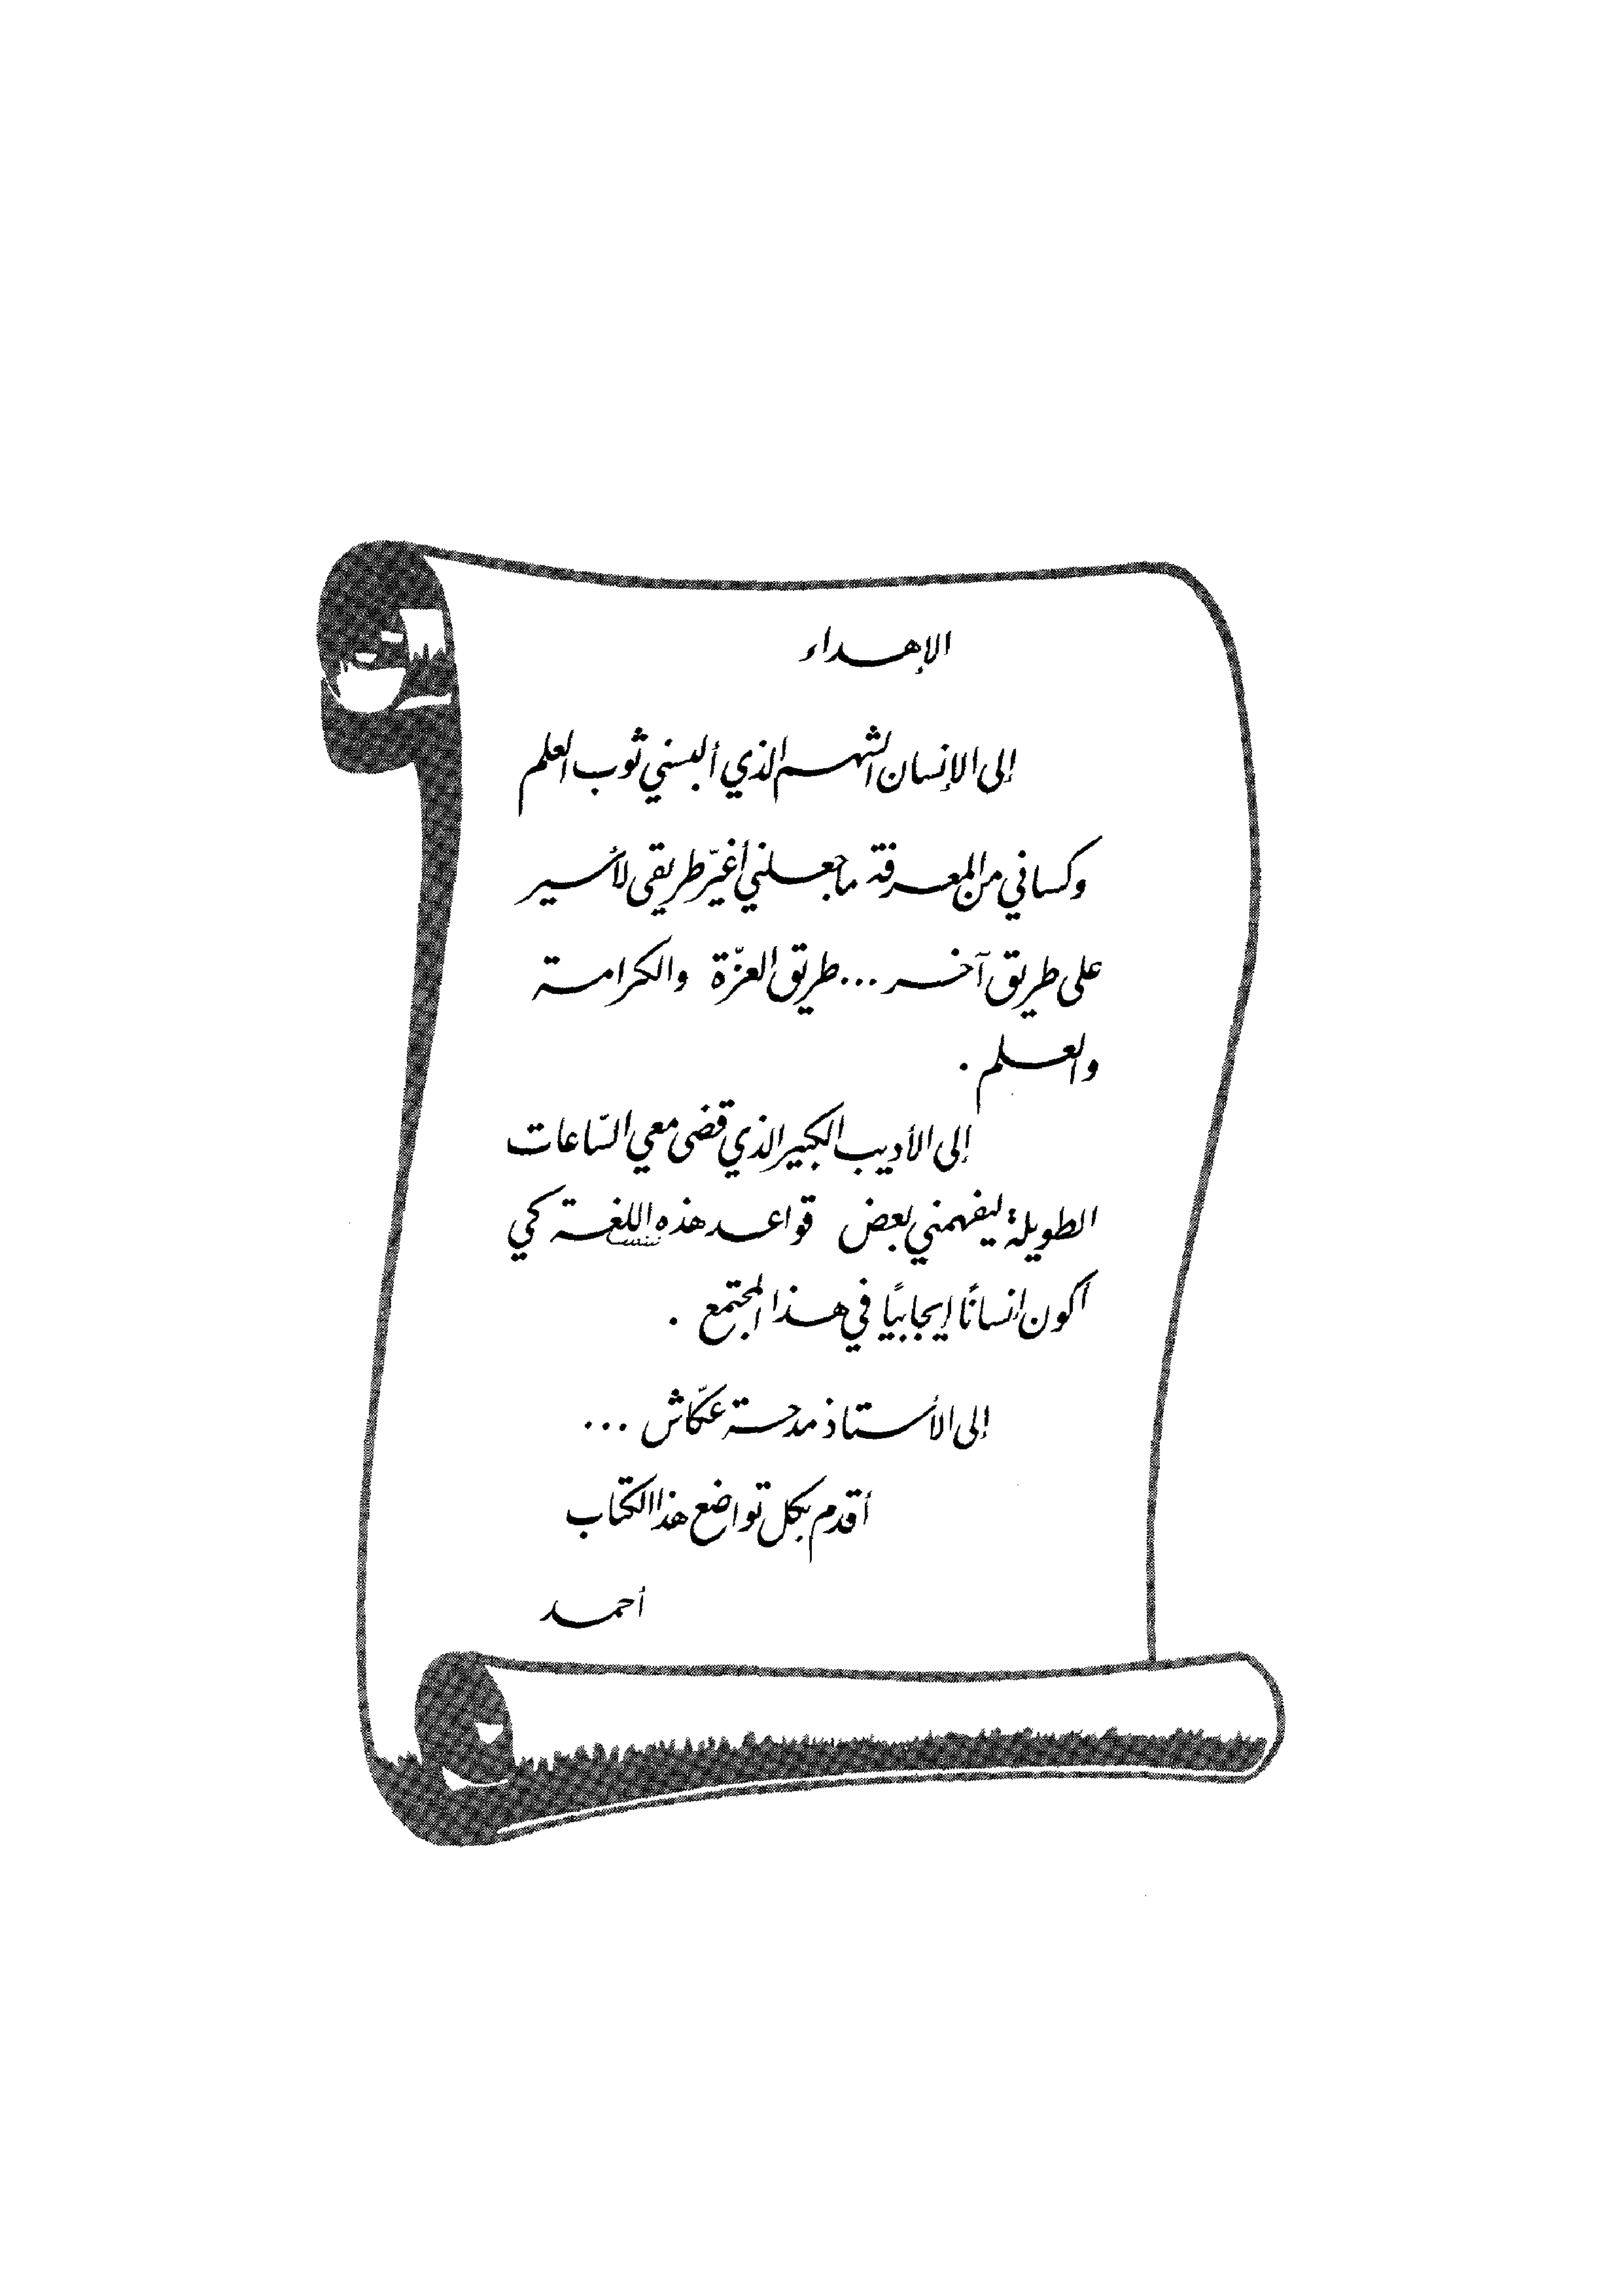 الإهداء
إلى الإنسان الشهم الذي ألبسني ثوب العلم
وكساني من المعرفة ما جعلني أغيّر طريقي لأسير
على طريق آخر ... طريق العزّة والكرامة
والعلم .
إلى الأديب الكبير الذي قضى معي السّاعات
الطويلة ليفهمني بعض قواعد هذه اللغة كي
أكون إنسانًا إيجابيًا في هذا المجتمع .
إلى الأستاذ مدحة عكّاش ...
أقدم بكل تواضع هذا الكتاب
أحمد